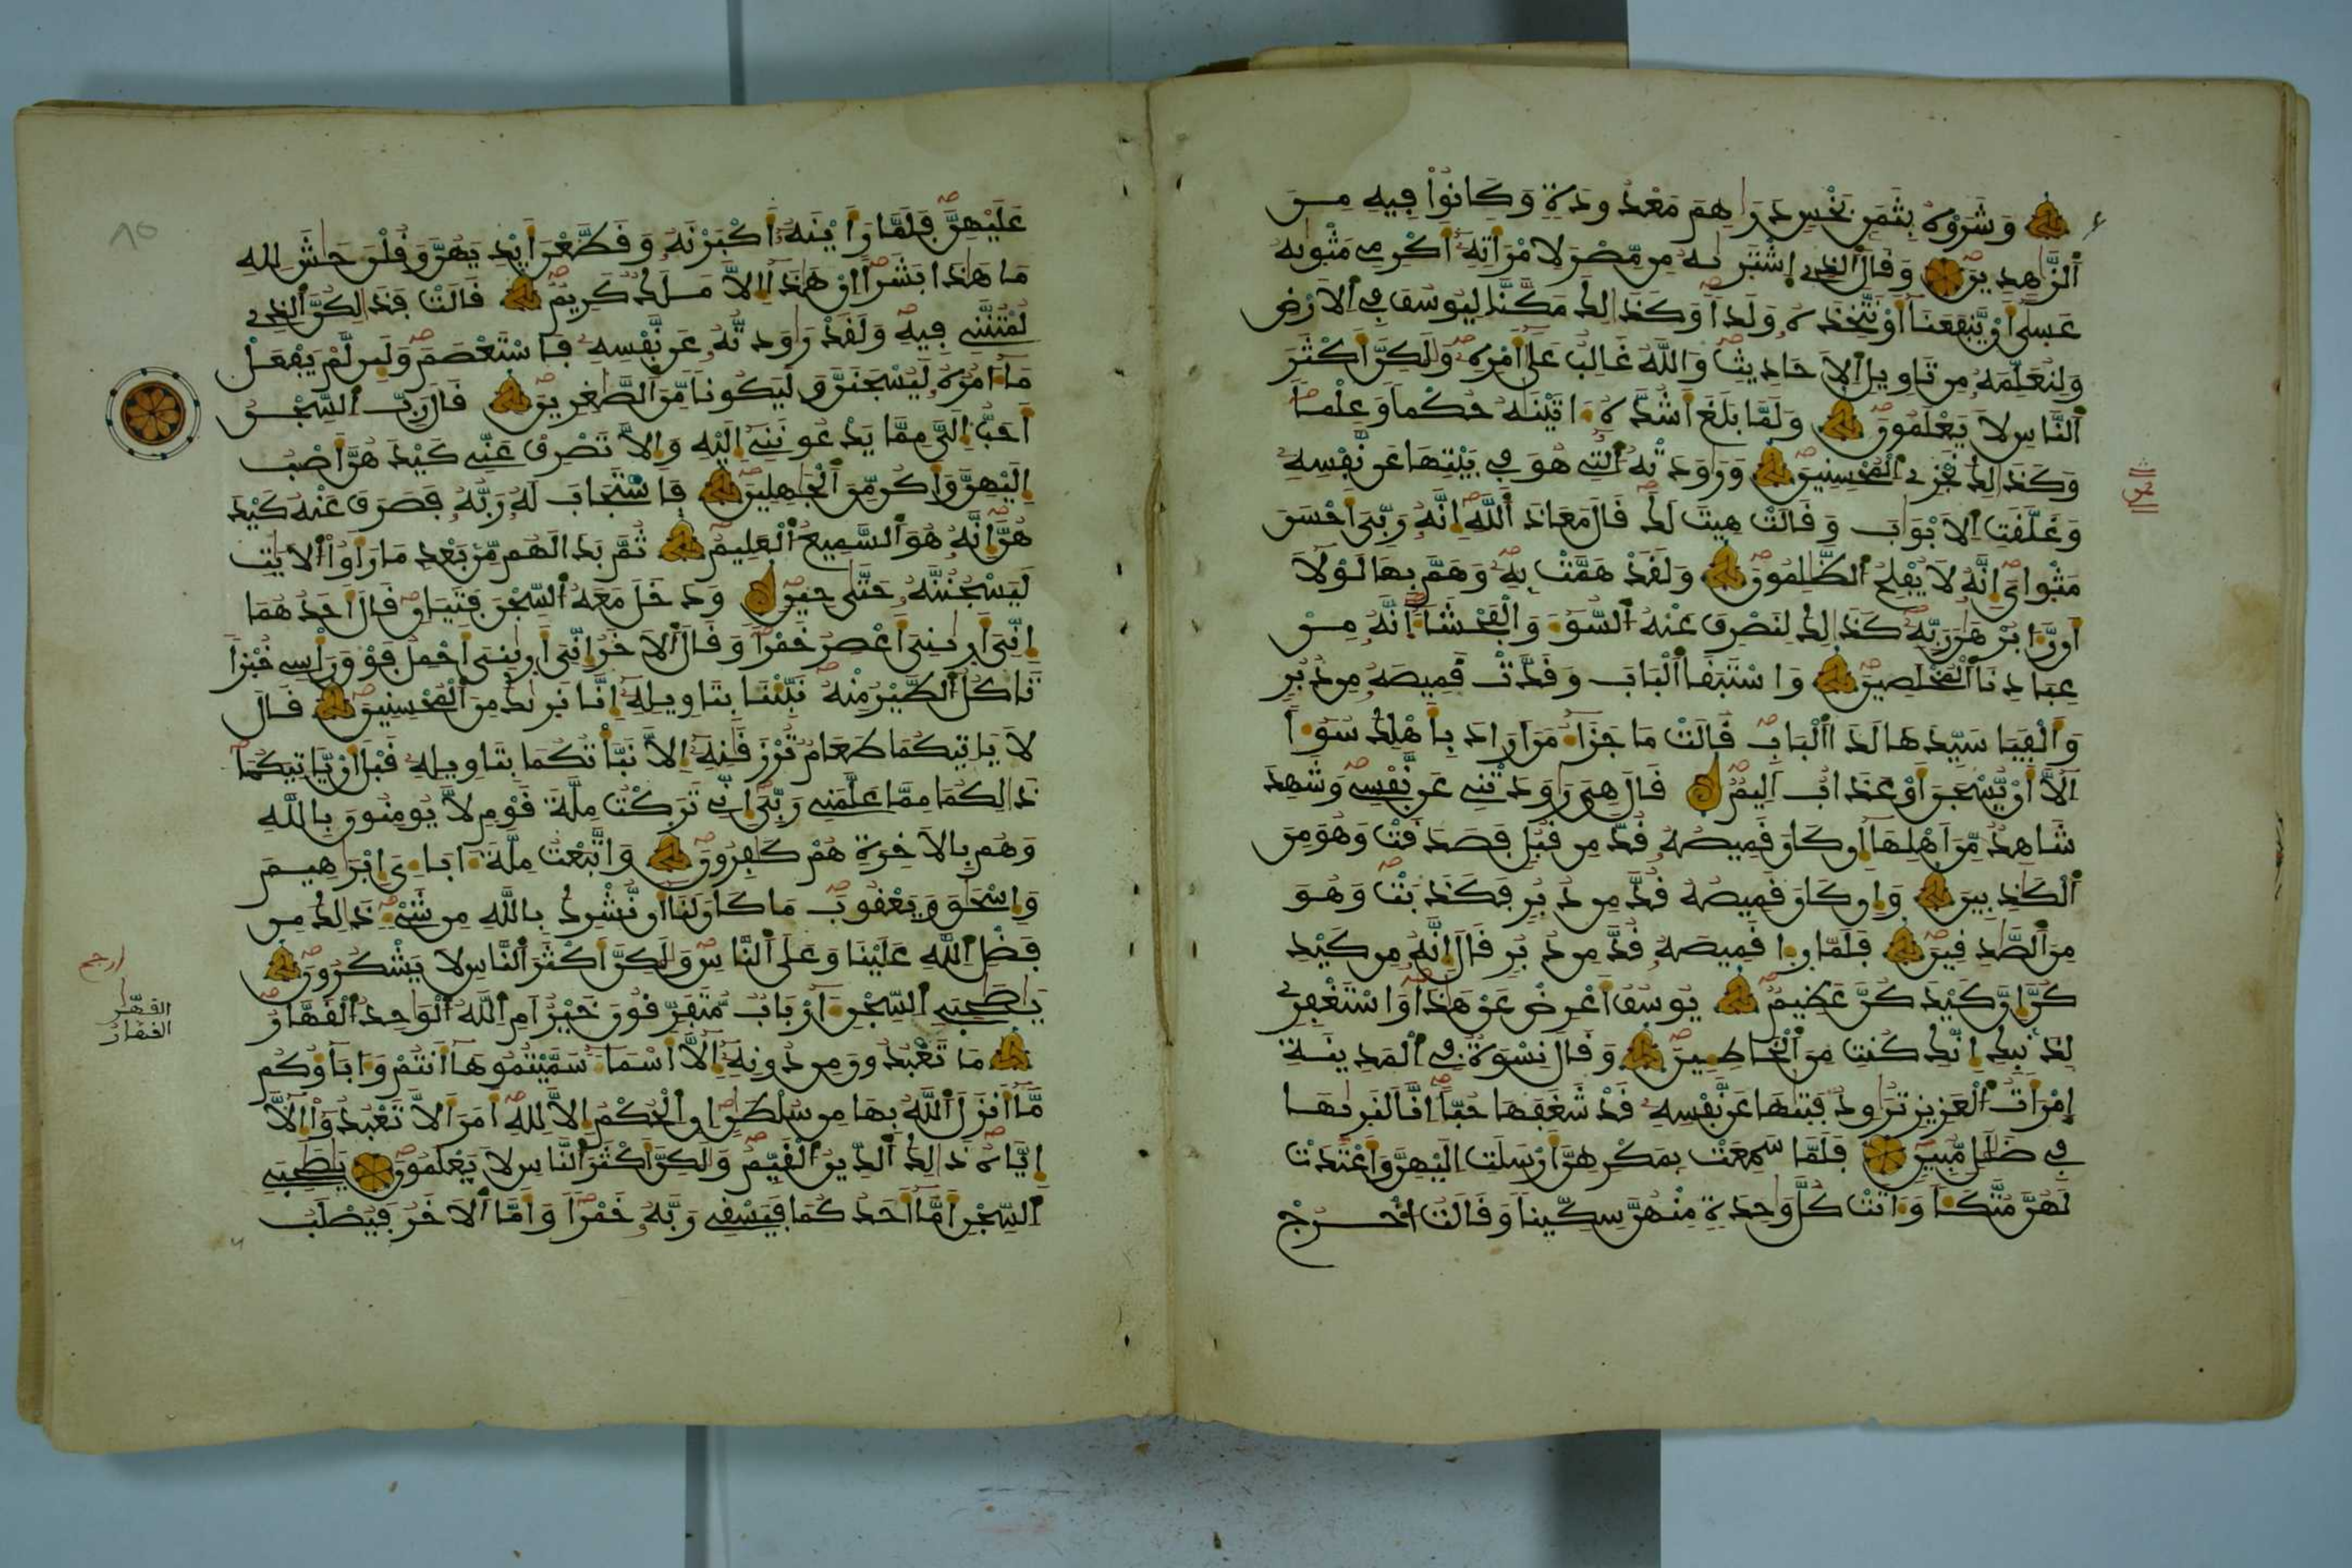 وَشَرَوْهُ بِثَمَنٍ بَخْسٍ دَرَاهِمَ مَعْدُودَةٍ وَكَانُواْ فِيهِ مِنَ
اَ۬لزَّاهِدِينَ وَقَالَ اَ۬لذِے اِ۪شْتَر۪يٰهُ مِن مِّصْرَ لِامْرَأَتِهِۦٓ أَكْرِمِے مَثْو۪يٰهُ
عَس۪يٰٓ أَنْ يَّنفَعَنَآ أَوْ نَتَّخِذَهُۥ وَلَداٗ وَكَذَٰلِكَ مَكَّنَّا لِيُوسُفَ فِے اِ۬لَارْضِ
وَلِنُعَلِّمَهُۥ مِن تَاوِيلِ اِ۬لَاحَادِيثِ وَاللَّهُ غَالِبٌ عَلَيٰٓ أَمْرِهِۦ وَلَٰكِنَّ أَكْثَرَ
اَ۬لنَّاسِ لَا يَعْلَمُونَ وَلَمَّا بَلَغَ أَشُدَّهُۥٓ ءَاتَيْنَٰهُ حُكْماٗ وَعِلْماٗ
وَكَذَٰلِكَ نَجْزِے اِ۬لْمُحْسِنِينَ وَرَٰوَدَتْهُ اُ۬لتِے هُوَ فِے بَيْتِهَا عَن نَّفْسِهِۦ
وَغَلَّقَتِ اِ۬لَابْوَٰبَ وَقَالَتْ هِيتَ لَكَ قَالَ مَعَاذَ اَ۬للَّهِ إِنَّهُۥ رَبِّيَ أَحْسَنَ
مَثْوَايَ إِنَّهُۥ لَا يُفْلِحُ اُ۬لظَّٰلِمُونَ وَلَقَدْ هَمَّتْ بِهِۦ وَهَمَّ بِهَا لَوْلَآ
أَن رَّء۪ا بُرْهَٰنَ رَبِّهِۦ كَذَٰلِكَ لِنَصْرِفَ عَنْهُ اُ۬لسُّوٓءَ وَالْفَحْشَآءَ انَّهُۥ مِنْ
عِبَادِنَا اَ۬لْمُخْلَصِينَ وَاسْتَبَقَا اَ۬لْبَابَ وَقَدَّتْ قَمِيصَهُۥ مِن دُبُرٖ
وَأَلْفَيَا سَيِّدَهَا لَدَا اَ۬لْبَابِ قَالَتْ مَا جَزَآءُ مَنَ اَرَادَ بِأَهْلِكَ سُوٓءاً
اِلَّآ أَنْ يُّسْجَنَ أَوْ عَذَابٌ اَلِيمٌ قَالَ هِيَ رَٰوَدَتْنِے عَن نَّفْسِے وَشَهِدَ
شَاهِدٌ مِّنَ اَهْلِهَآ إِن كَانَ قَمِيصُهُۥ قُدَّ مِن قُبُلٖ فَصَدَقَتْ وَهُوَ مِنَ
اَ۬لْكَٰذِبِينَ وَإِن كَانَ قَمِيصُهُۥ قُدَّ مِن دُبُرٖ فَكَذَبَتْ وَهُوَ
مِنَ اَ۬لصَّٰدِقِينَ فَلَمَّا رَء۪ا قَمِيصَهُۥ قُدَّ مِن دُبُرٖ قَالَ إِنَّهُۥ مِن كَيْدِ
كُنَّ إِنَّ كَيْدَكُنَّ عَظِيمٌ يُوسُفُ أَعْرِضْ عَنْ هَٰذَا وَاسْتَغْفِرِے
لِذَنۢبِكِ إِنَّكِ كُنتِ مِنَ اَ۬لْخَاطِـِٕينَ وَقَالَ نِسْوَةٌ فِے اِ۬لْمَدِينَةِ
اِ۪مْرَأَتُ اُ۬لْعَزِيزِ تُرَٰوِدُ فَت۪يٰهَا عَن نَّفْسِهِۦ قَدْ شَغَفَهَا حُبّاً اِنَّا لَنَر۪يٰهَا
فِے ضَلَٰلٖ مُّبِينٖ فَلَمَّا سَمِعَتْ بِمَكْرِهِنَّ أَرْسَلَتِ اِلَيْهِنَّ وَأَعْتَدَتْ
لَهُنَّ مُتَّكَـٔاٗ وَءَاتَتْ كُلَّ وَٰحِدَةٖ مِّنْهُنَّ سِكِّيناٗ وَقَالَتُ اُ۟خْرُجْ
عَلَيْهِنَّ فَلَمَّا رَأَيْنَهُۥٓ أَكْبَرْنَهُۥ وَقَطَّعْنَ أَيْدِيَهُنَّ وَقُلْنَ حَٰشَ لِلهِ
مَا هَٰذَا بَشَراً اِنْ هَٰذَآ إِلَّا مَلَكٌ كَرِيمٌ قَالَتْ فَذَٰلِكُنَّ اَ۬لذِے
لُمْتُنَّنِے فِيهِ وَلَقَدْ رَٰوَدتُّهُۥ عَن نَّفْسِهِۦ فَاسْتَعْصَمَ وَلَئِن لَّمْ يَفْعَلْ
مَآ ءَامُرُهُۥ لَيُسْجَنَنَّ وَلَيَكُوناٗ مِّنَ اَ۬لصَّٰغِرِينَ قَالَ رَبِّ اِ۬لسِّجْنُ
أَحَبُّ إِلَيَّ مِمَّا يَدْعُونَنِےٓ إِلَيْهِ وَإِلَّا تَصْرِفْ عَنِّے كَيْدَهُنَّ أَصْبُ
إِلَيْهِنَّ وَأَكُن مِّنَ اَ۬لْجَٰهِلِينَ فَاسْتَجَابَ لَهُۥ رَبُّهُۥ فَصَرَفَ عَنْهُ كَيْدَ
هُنَّ إِنَّهُۥ هُوَ اَ۬لسَّمِيعُ اُ۬لْعَلِيمُ ثُمَّ بَدَا لَهُم مِّنۢ بَعْدِ مَا رَأَوُاْ اُ۬لَايَٰتِ
لَيَسْجُنُنَّهُۥ حَتَّيٰ حِينٖ وَدَخَلَ مَعَهُ اُ۬لسِّجْنَ فَتَيَٰنِ قَالَ أَحَدُهُمَآ
إِنِّيَ أَر۪يٰنِيَ أَعْصِرُ خَمْراٗ وَقَالَ اَ۬لَاخَرُ إِنِّيَ أَر۪يٰنِيَ أَحْمِلُ فَوْقَ رَأْسِے خُبْزاٗ
تَاكُلُ اُ۬لطَّيْرُ مِنْهُ نَبِّئْنَا بِتَاوِيلِهِۦٓ إِنَّا نَر۪يٰكَ مِنَ اَ۬لْمُحْسِنِينَ قَالَ
لَا يَاتِيكُمَا طَعَامٌ تُرْزَقَٰنِهِۦٓ إِلَّا نَبَّأْتُكُمَا بِتَاوِيلِهِۦ قَبْلَ أَنْ يَّاتِيَكُمَا
ذَٰلِكُمَا مِمَّا عَلَّمَنِے رَبِّيَ إِنِّے تَرَكْتُ مِلَّةَ قَوْمٖ لَّا يُومِنُونَ بِاللَّهِ
وَهُم بِالَاخِرَةِ هُمْ كَٰفِرُونَ وَاتَّبَعْتُ مِلَّةَ ءَابَآءِيَ إِبْرَٰهِيمَ
وَإِسْحَٰقَ وَيَعْقُوبَ مَا كَانَ لَنَآ أَن نُّشْرِكَ بِاللَّهِ مِن شَےْءٖ ذَٰلِكَ مِن
فَضْلِ اِ۬للَّهِ عَلَيْنَا وَعَلَي اَ۬لنَّاسِ وَلَٰكِنَّ أَكْثَرَ اَ۬لنَّاسِ لَا يَشْكُرُونَ
يَٰصَٰحِبَيِ اِ۬لسِّجْنِ ءَآرْبَابٌ مُّتَفَرِّقُونَ خَيْرٌ اَمِ اِ۬للَّهُ اُ۬لْوَٰحِدُ اُ۬لْقَهَّارُ
مَا تَعْبُدُونَ مِن دُونِهِۦٓ إِلَّآ أَسْمَآءٗ سَمَّيْتُمُوهَآ أَنتُمْ وَءَابَآؤُكُم
مَّآ أَنزَلَ اَ۬للَّهُ بِهَا مِن سُلْطَٰنٍ اِنِ اِ۬لْحُكْمُ إِلَّا لِلهِ أَمَرَ أَلَّا تَعْبُدُوٓاْ إِلَّآ
إِيَّاهُ ذَٰلِكَ اَ۬لدِّينُ اُ۬لْقَيِّمُ وَلَٰكِنَّ أَكْثَرَ اَ۬لنَّاسِ لَا يَعْلَمُونَ يَٰصَٰحِبَيِ
اِ۬لسِّجْنِ أَمَّآ أَحَدُكُمَا فَيَسْقِے رَبَّهُۥ خَمْراٗ وَأَمَّا اَ۬لَاخَرُ فَيُصْلَبُ
القهّٰر
القهار